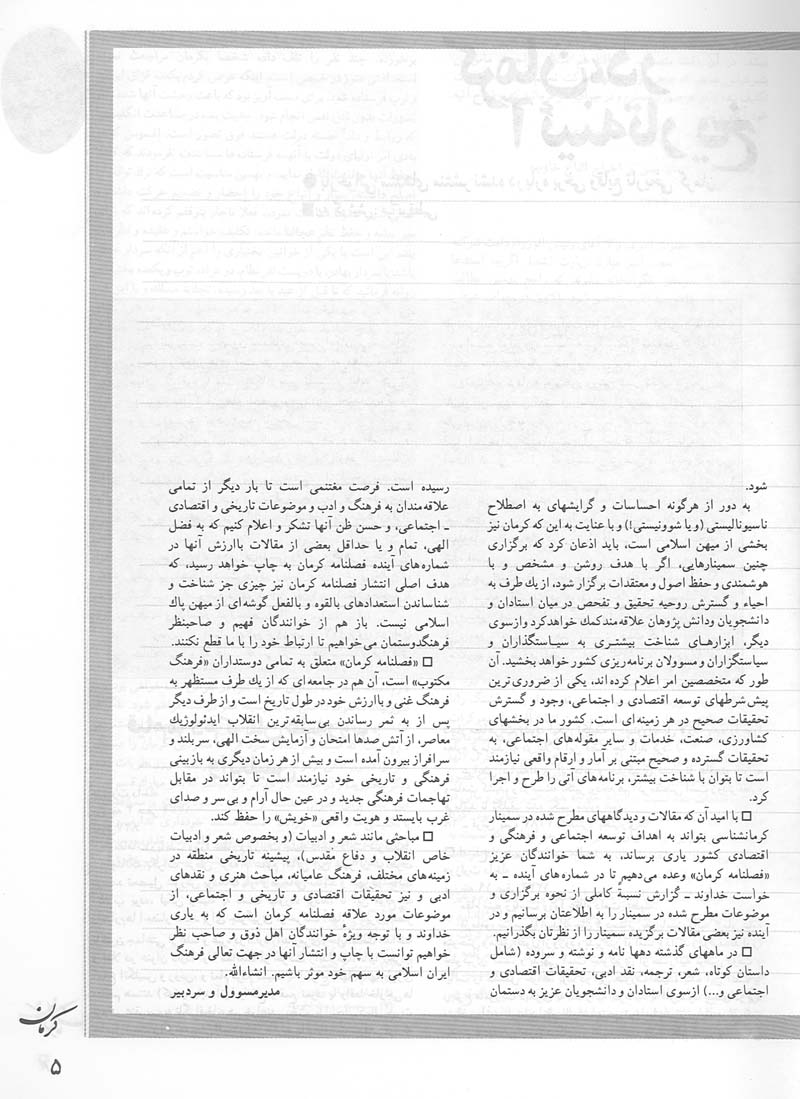 شود.
به دور از هرگونه احساسات و گرایشهای به اصطلاح
ناسیونالیستی (و یا شوونیستی!) و با عنایت به این که کرمان نیز
بخشی از میهن اسلامی است، باید اذعان کرد که برگزاری
چنین سمینارهایی، اگر با هدف روشن و مشخص و با
هوشمندی و حفظ اصول و معتقدات برگزار شود، از یك طرف به
احیاء و گسترش روحیه تحقیق و تفحص در میان استادان و
دانشجویان ودانش پژوهان علاقه مندکمك خواهدکرد وازسوی
دیگر، ابزارهای شناخت بیشتری به سیاستگذاران و
سیاستگزاران و مسوولان برنامه‌ریزی کشور خواهد بخشید. آن
طور که متخصصین امر اعلام کرده‌اند، یکی از ضروری ترین
پیش شرطهای توسعه اقتصادی و اجتماعی، وجود و گسترش
تحقیقات صحیح در هر زمینه‌ای است. کشور ما در بخشهای
کشاورزی، صنعت، خدمات و سایر مقوله‌های اجتماعی، به
تحقیقات گسترده و صحیح مبتنی بر آمار و ارقام واقعی نیازمند
است تا بتوان با شناخت بیشتر، برنامه‌های آتی را طرح و اجرا
کرد.
□ با امید آن که مقالات و دیدگاههای مطرح شده در سمینار
کرمانشناسی بتواند به اهداف توسعه اجتماعی و فرهنگی و
اقتصادی کشور یاری برساند، به شما خوانندگان عزیز
«فصلنامه کرمان» وعده می‌دهیم تا در شماره‌های آینده ـ به
خواست خداوند ـ گزارش نسبةً کاملی از نحوه برگزاری و
موضوعات مطرح شده در سمینار را به اطلاعتان برسانیم و در
آینده نیز بعضی مقالات برگزیده سمیناررا از نظرتان بگذرانیم.
□ در ماههای گذشته دهها نامه و نوشته و سروده (شامل
داستان کوتاه، شعر، ترجمه، نقد ادبی، تحقیقات اقتصادی و
اجتماعی و...) ازسوی استادان و دانشجویان عزیز به دستمان
رسیده است. فرصت مغتنمی است تا بار دیگر از تمامی
علاقه‌مندان به فرهنگ و ادب و موضوعات تاریخی و اقتصادی
ـ اجتماعی، و حسن ظن آنها تشکر و اعلام کنیم که به فضل
الهی، تمام و یا حداقل بعضی از مقالات باارزش آنها در
شماره‌های آینده فصلنامه کرمان به چاپ خواهد رسید، که
هدف اصلی انتشار فصلنامه کرمان نیز چیزی جز شناخت و
شناساندن استعدادهای بالقوه و بالفعل گوشه‌ای از میهن پاك
اسلامی نیست. باز هم از خوانندگان فهیم و صاحبنظر
فرهنگدوستمان می‌خواهیم تا ارتباط خود را با ما قطع نکنند.
□ «فصلنامه کرمان» متعلق به تمامی دوستداران «فرهنگ
مکتوب» است، آن هم در جامعه‌ای که از یك طرف مستظهر به
فرهنگ غنی و باارزش خود در طول تاریخ است و از طرف دیگر
پس از به ثمر رساندن بی‌سابقه‌ترین انقلاب ایدئولوژیك
معاصر، از آتش صدها امتحان و آزمایش سخت الهی، سربلند و
سرافراز بیرون آمده است و بیش از هر زمان دیگری به بازبینی
فرهنگی و تاریخی خود نیازمند است تا بتواند در مقابل
تهاجمات فرهنگی جدید و در عین حال آرام و بی سر و صدای
غرب بایستد و هویت واقعی «خویش» را حفظ کند.
□ مباحثی مانند شعر و ادبیات (و بخصوص شعر و ادبیات
خاص انقلاب و دفاع مقدس)، پیشینه تاریخی منطقه در
زمینه‌های مختلف، فرهنگ عامیانه، مباحث هنری و نقدهای
ادبی و نیز تحقیقات اقتصادی و تاریخی و اجتماعی، از
موضوعات مورد علاقه فصلنامه کرمان است که به یاری
خداوند و با توجه ویژهٔ خوانندگان اهل ذوق و صاحب نظر
خواهیم توانست با چاپ و انتشار آنها در جهت تعالی فرهنگ
ایران اسلامی به سهم خود موثر باشیم. انشاءالله.
مدیرمسوول و سردبیر
کرمان
۵